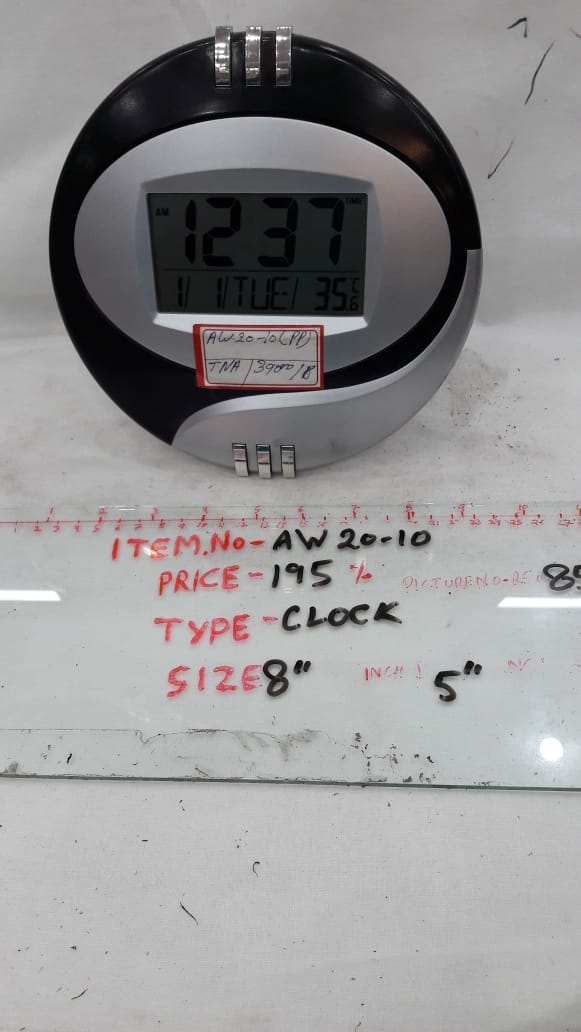 AM 12 37 TIME
1/ 1/TUE/ 35.6 °C
AW 20-10 (PP)
TNA
ITEM.NO- AW 20-10
PRICE - 195 %
PICTURE NO-
TYPE - CLOCK
SIZE 8" INCH 5"